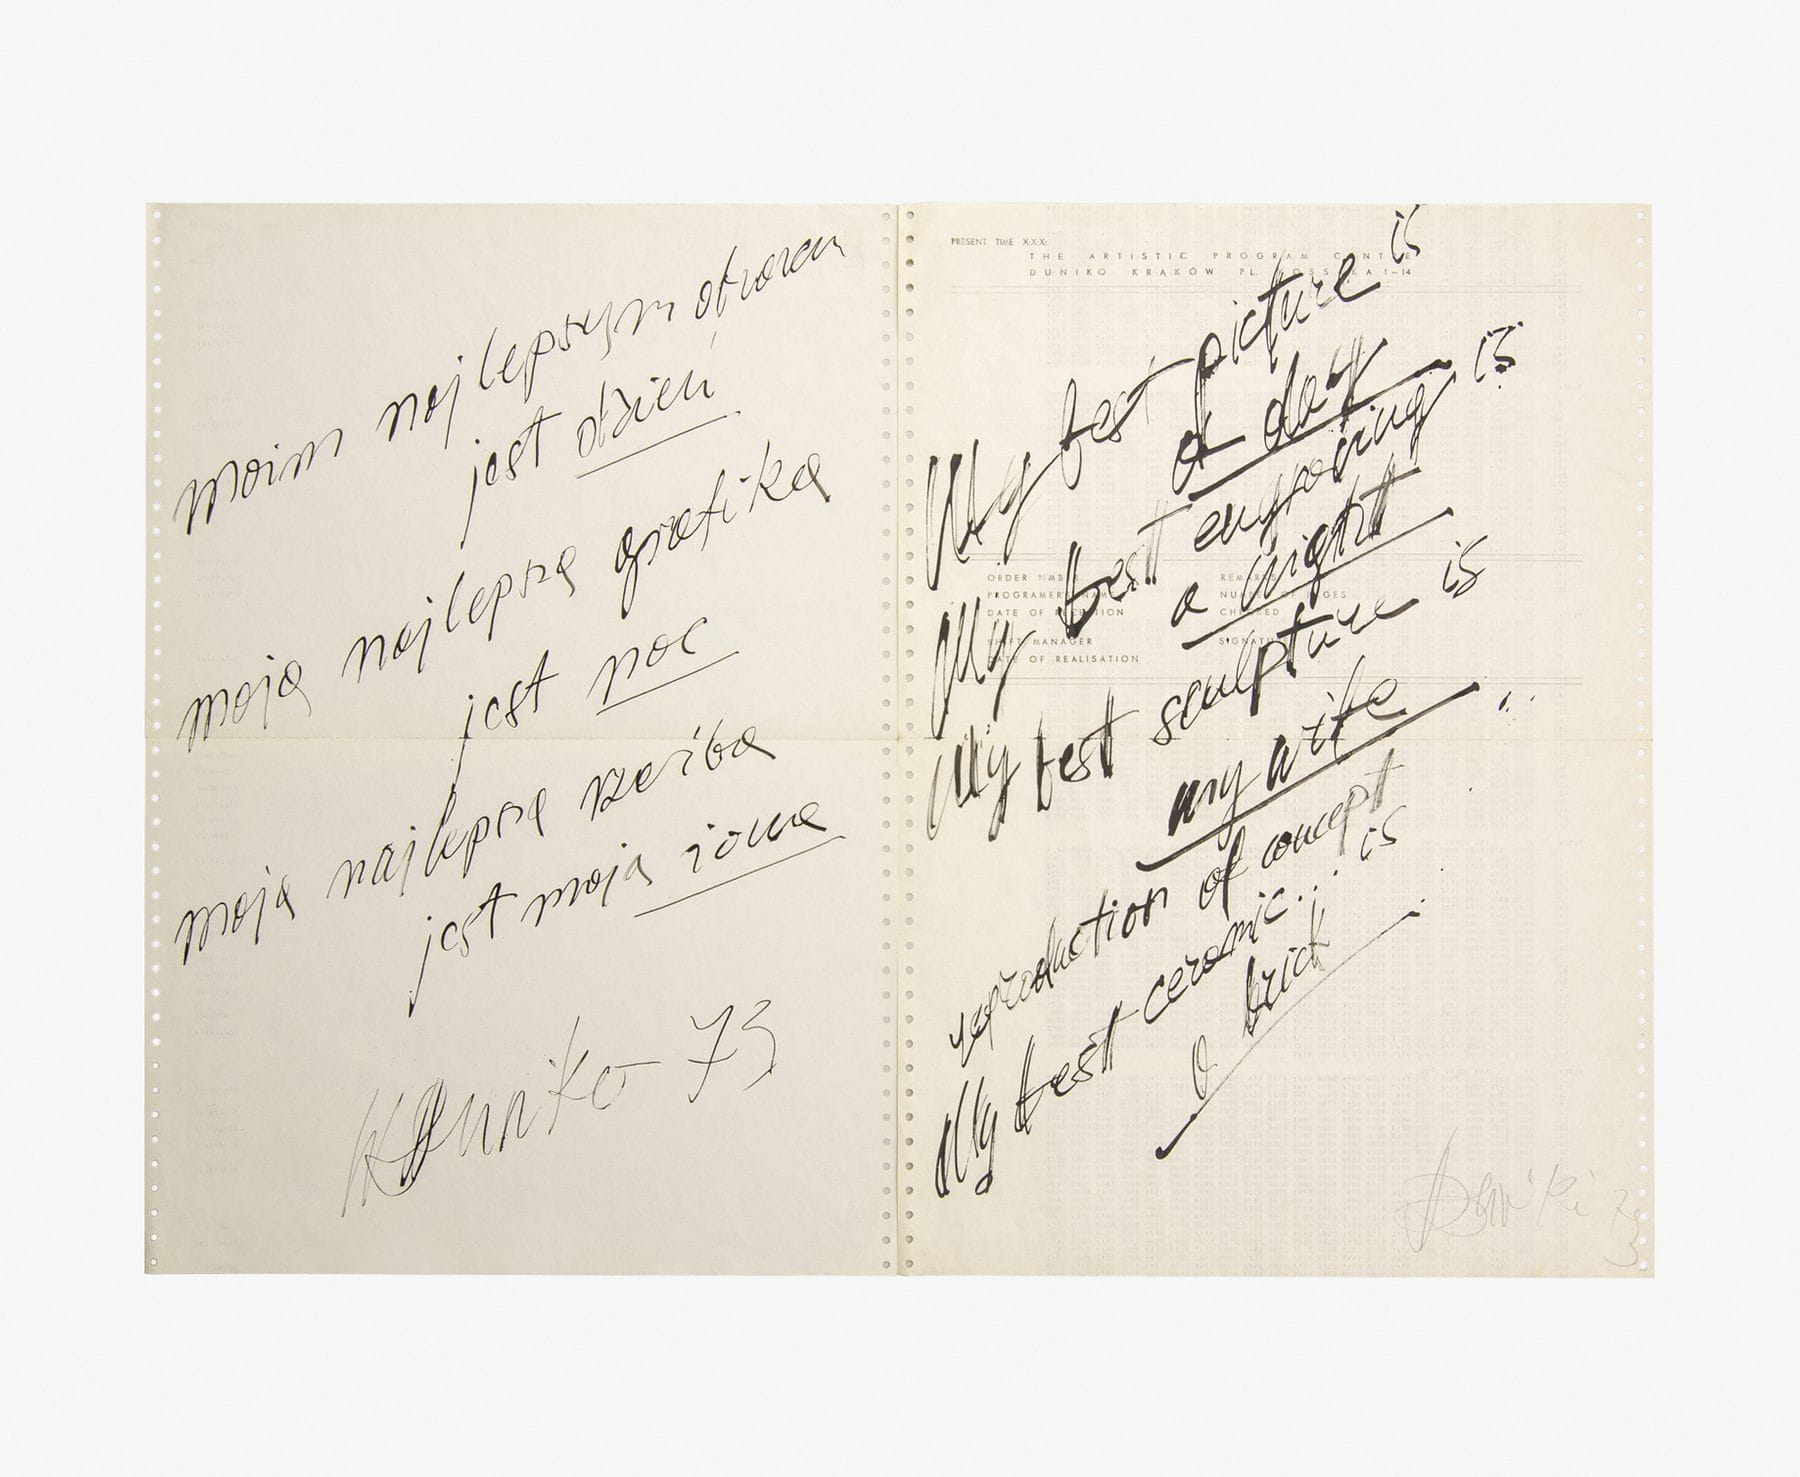 moim najlepszym obrazem
jest dzień
moją najlepszą grafiką
jest noc
moją najlepszą rzeźbą
jest moja żona
WDuniko 73
PRESENT TIME X:X:X:
THE ARTISTIC PROGRAM CENTRE
DUNIKO KRAKÓW PL. KOSSAKA 1-14
My best picture is
a day
My best engraving is
a night
ORDER NMBER
REMARKS
PROGRAMER'S NAME
NUMBER OF PAGES
DATE OF RECEPTION
CHECKED
SHIFT MANAGER
SIGNATURE
DATE OF REALISATION
My best sculpture is
my wife
reproduction of concept
My best ceramic... is
a brick
Duniko 73